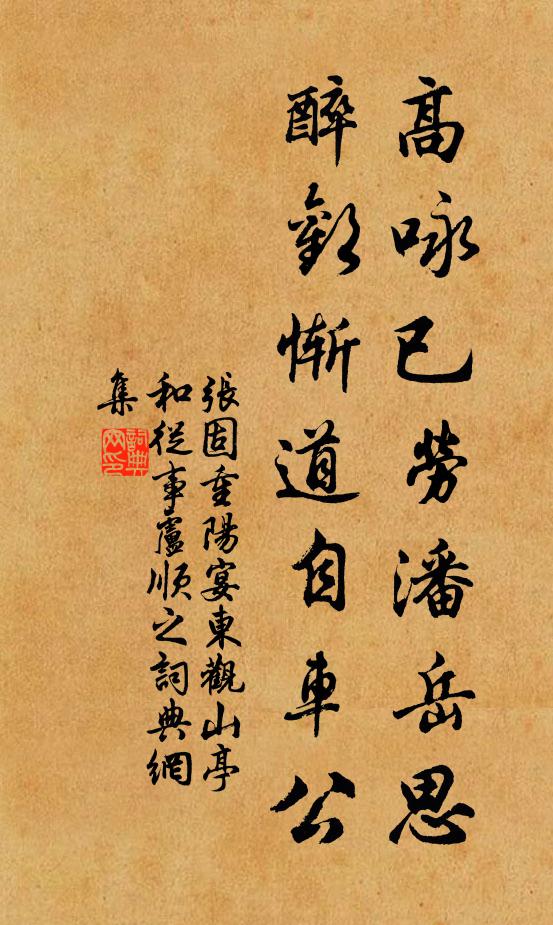 高咏已劳潘岳思
醉歡慚道自車公
張固重陽宴東觀山亭
和從事盧順之詞典網
集
詞典
网印